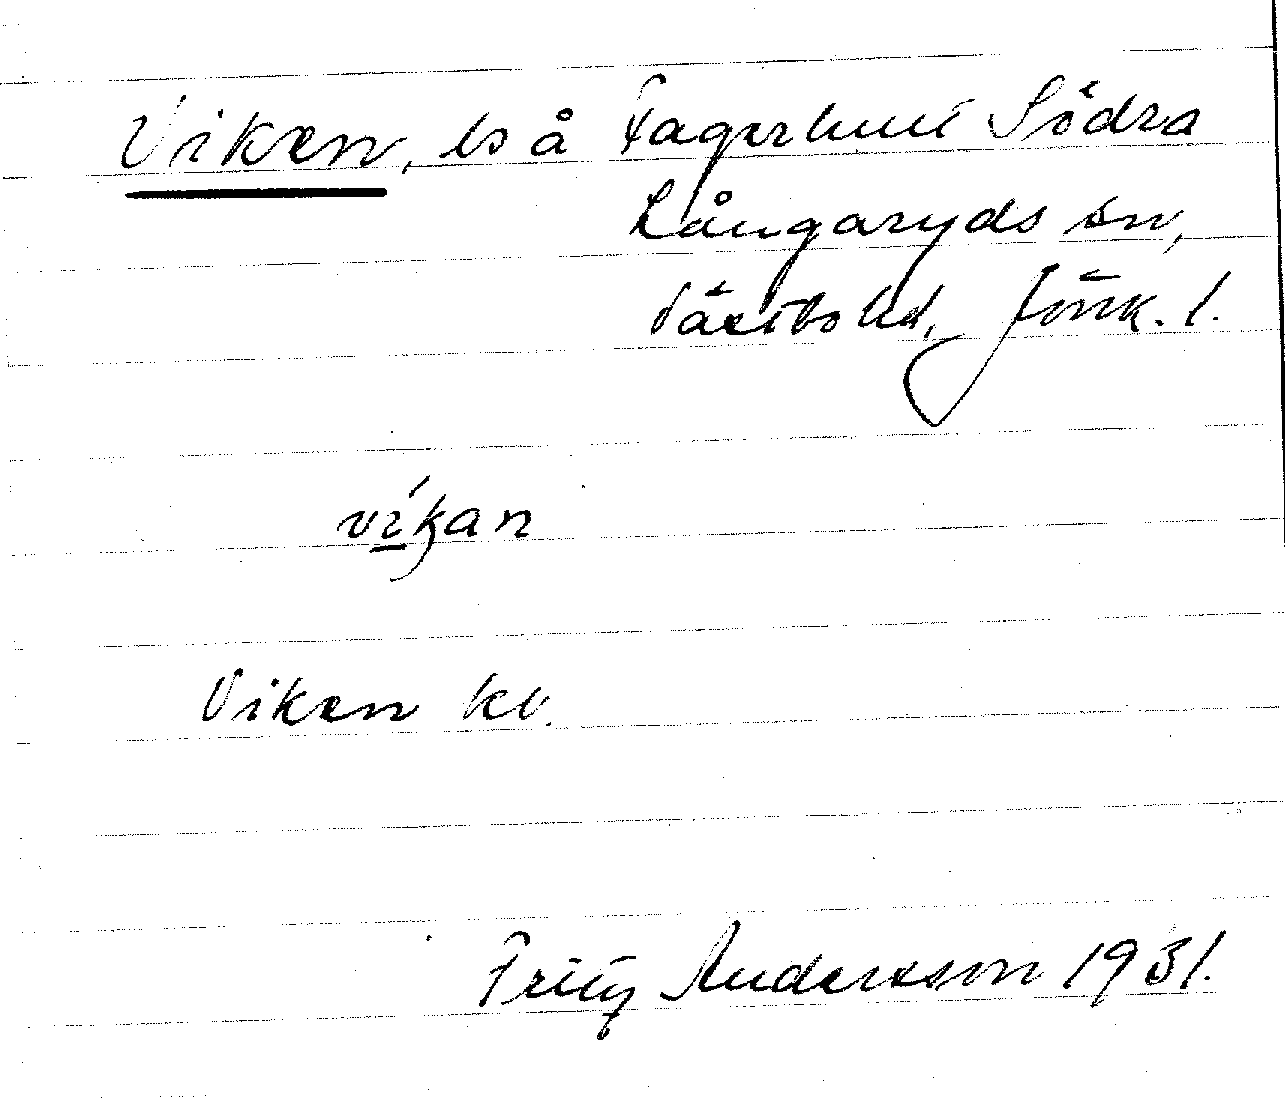 Viken, ls å Fagerhult Södra
Långaryds sn,
Västbo hd, Jönk. l.
vikan
Viken kv.
Fritz Andersson 1931.